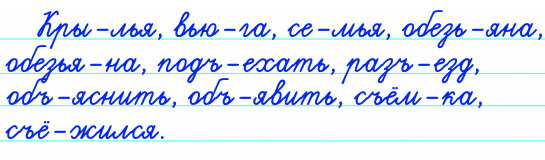 Кры-лья, вью-га, се-мья, обезь-яна,
обезья-на, подъ-ехать, разъ-езд,
объ-яснить, объ-явить, съём-ка,
съё-жился.